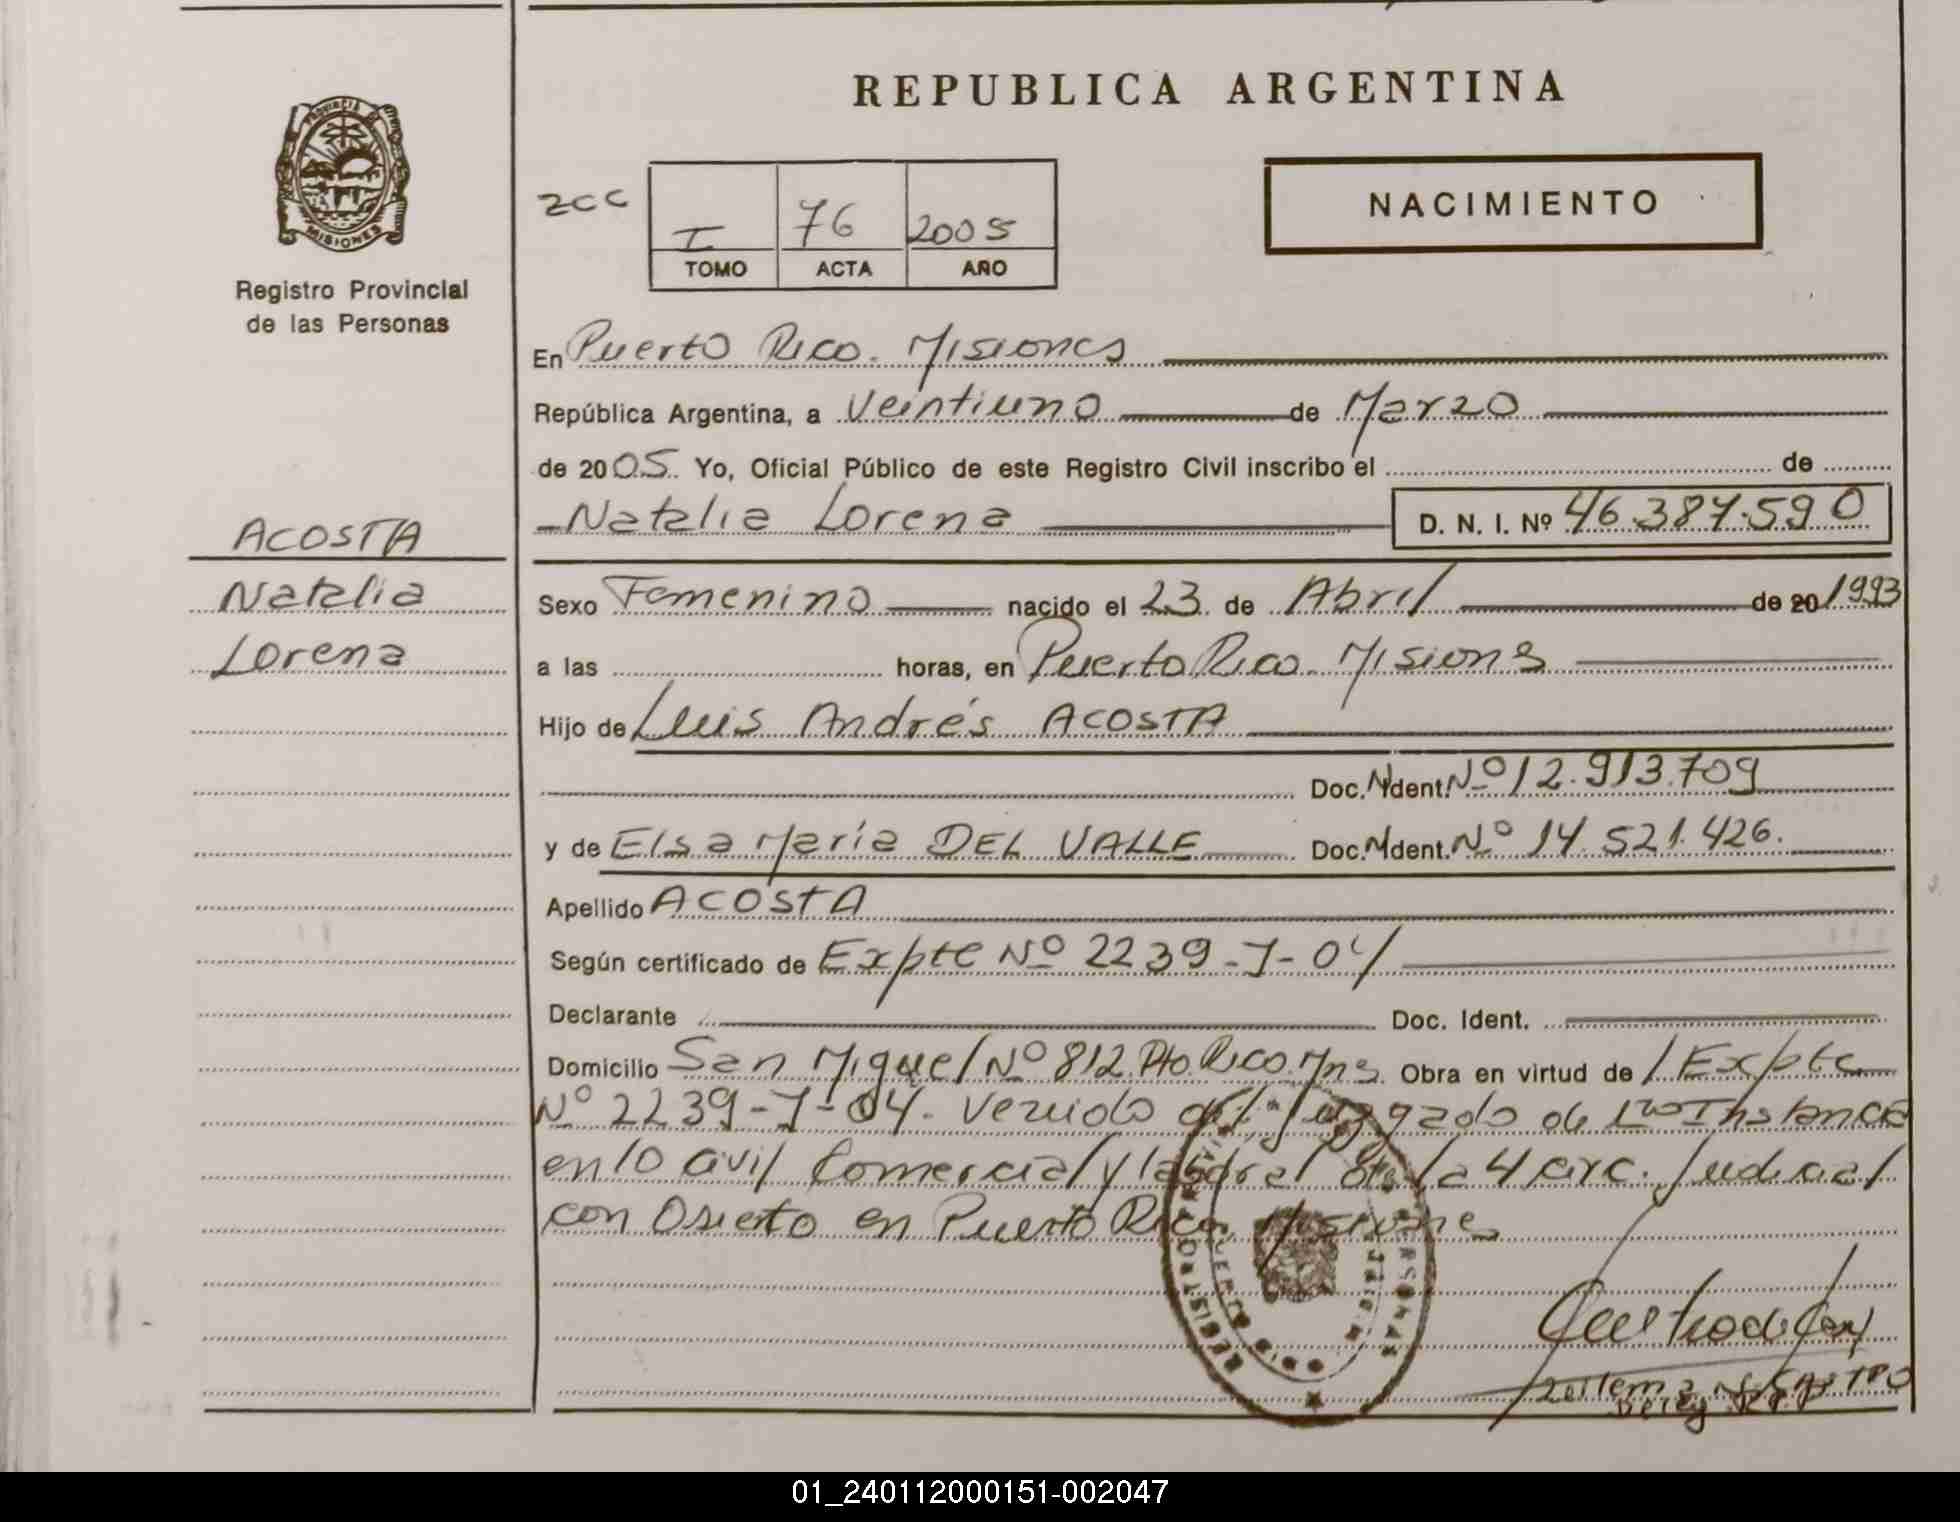 REPUBLICA ARGENTINA
PROVINCIA DE
MISIONES
Registro Provincial
de las Personas
2CC
I 76 2005
TOMO ACTA AÑO
NACIMIENTO
En Puerto Rico. Misiones
República Argentina, a Veintiuno de Marzo
de 2005. Yo, Oficial Público de este Registro Civil inscribo el de
Natalia Lorena D. N. I. Nº 46.387.590
ACOSTA
Natalia
Lorena
Sexo Femenino nacido el 23 de Abril de 20 1993
a las horas, en Puerto Rico. Misiones
Hijo de Luis Andrés ACOSTA
Doc. Ident. Nº 12.913.709
y de Elsa María DEL VALLE Doc. Ident. Nº 14.521.426.
Apellido ACOSTA
Según certificado de Expte Nº 2239-J-04
Declarante Doc. Ident.
Domicilio San Miguel Nº 812 Pto. Rico. Mns. Obra en virtud de Expte
Nº 2239-J-04. Venido del Juzgado de 1ra Instancia
en lo Civil Comercial y laboral de la 4 circ. Judicial
con Asiento en Puerto Rico Misiones
01_240112000151-002047